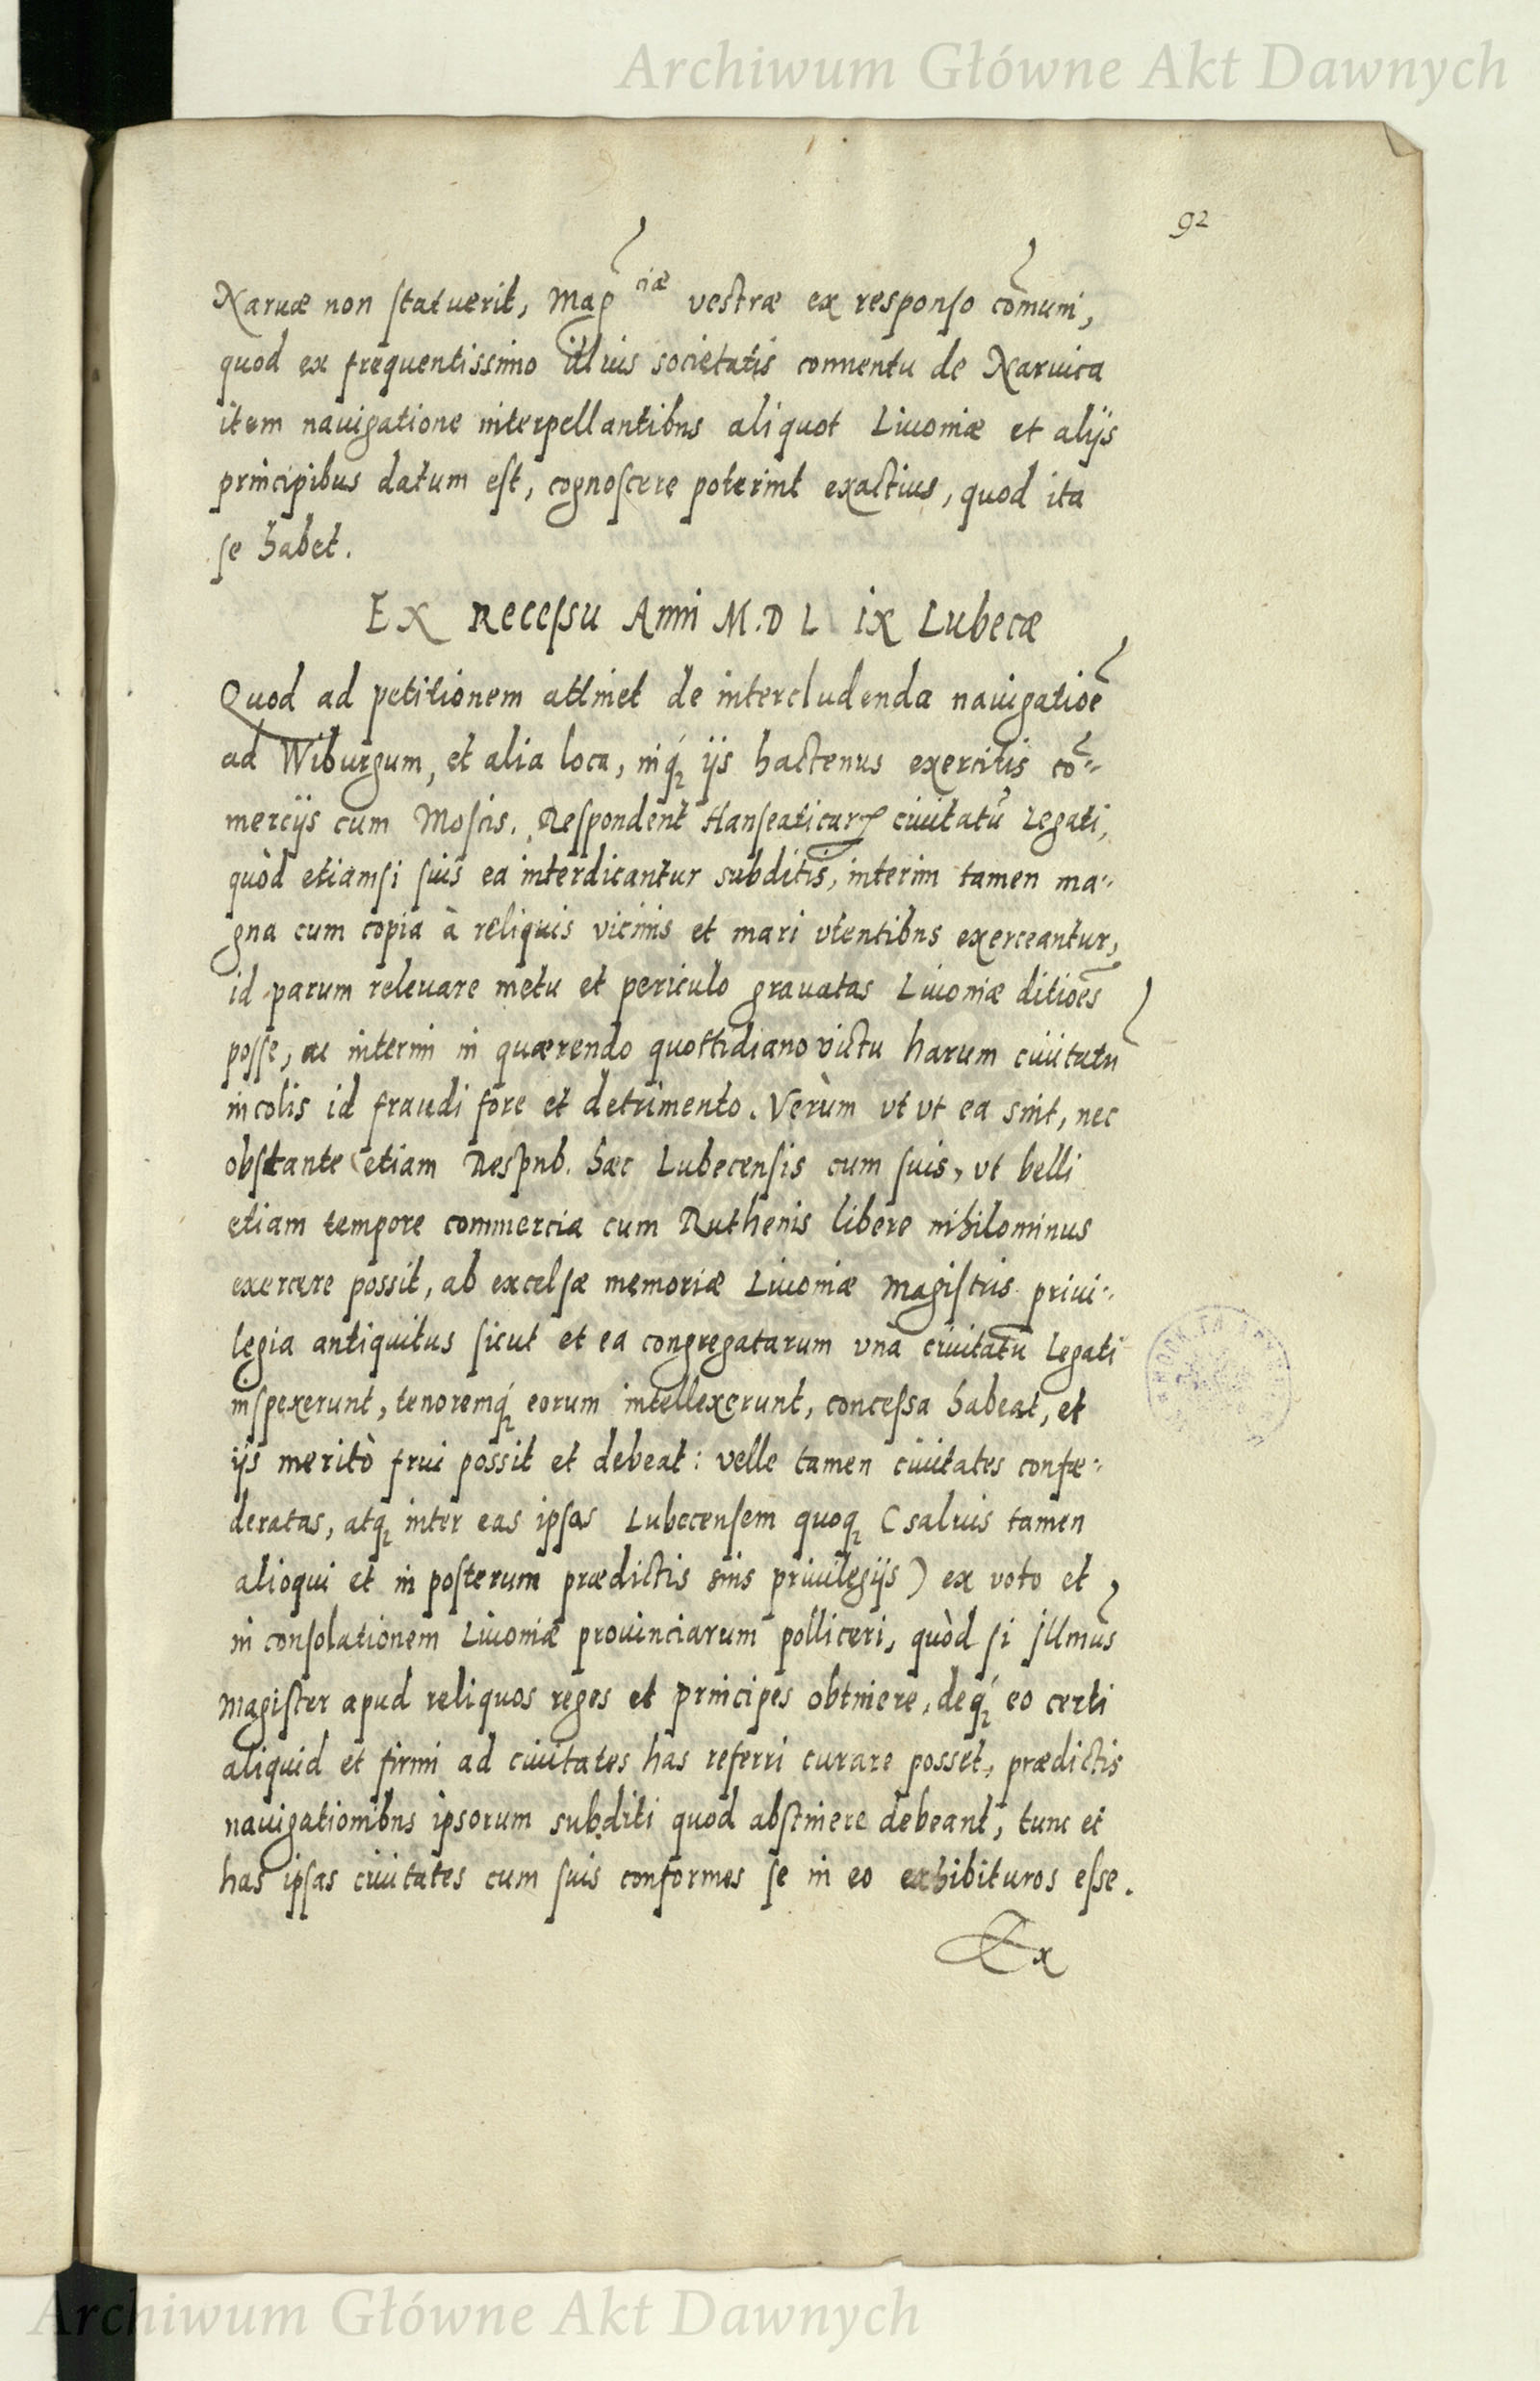 Archiwum Główne Akt Dawnych
92
Naruæ non statuerit, Mag ciæ vestræ ex responso cõmuni,
quod ex frequentissimo illius societatis conuentu de Naruica
item nauigatione interpellantibus aliquot Liuoniæ et alijs
principibus datum est, cognoscere poterint exactius, quod ita
se habet.
Ex Recessu Anni M.D L ix Lubecæ
Quod ad petitionem attinet de intercludenda nauigatiõe
ad Wiburgum, et alia loca, inq́ȝ ijs hactenus exercitis cõ-
mercijs cum Moscis. Respondent Hanseaticarꝝ ciuitatũ Legati,
quòd etiamsi suis ea interdicantur subditis, interim tamen ma-
gna cum copia à reliquis vicinis et mari vtentibus exerceantur,
id parum releuare metu et periculo grauatas Liuoniæ ditiões
posse, ac interim in quærendo quottidiano victu harum ciuitatũ
incolis id fraudi fore et detrimento. Verùm vt vt ea sint, nec
obstante etiam Respub. hæc Lubecensis cum suis, vt belli
etiam tempore commercia cum Ruthenis libere nihilominus
exercere possit, ab excelsæ memoriæ Liuoniæ Magistris priui-
legia antiquitus sicut et ea congregatarum vnà ciuitatũ Legati
inspexerunt, tenoremq́ȝ eorum intellexerunt, concessa habeat, et
ijs meritò frui possit et debeat: velle tamen ciuitates confœ-
deratas, atqȝ inter eas ipsas Lubecensem quoqȝ (saluis tamen
alioqui et in posterum prædictis suis priuilegijs) ex voto et
in consolationem Liuoniæ prouinciarum polliceri, quòd si Jllmũs
Magister apud reliquos reges et principes obtinere, deq́ȝ eo certi
aliquid et firmi ad ciuitates has referri curare posset, prædictis
nauigationibus ipsorum subditi quod abstinere debeant, tunc et
has ipsas ciuitates cum suis conformes se in eo exhibituros esse.
Ex
Archiwum Główne Akt Dawnych